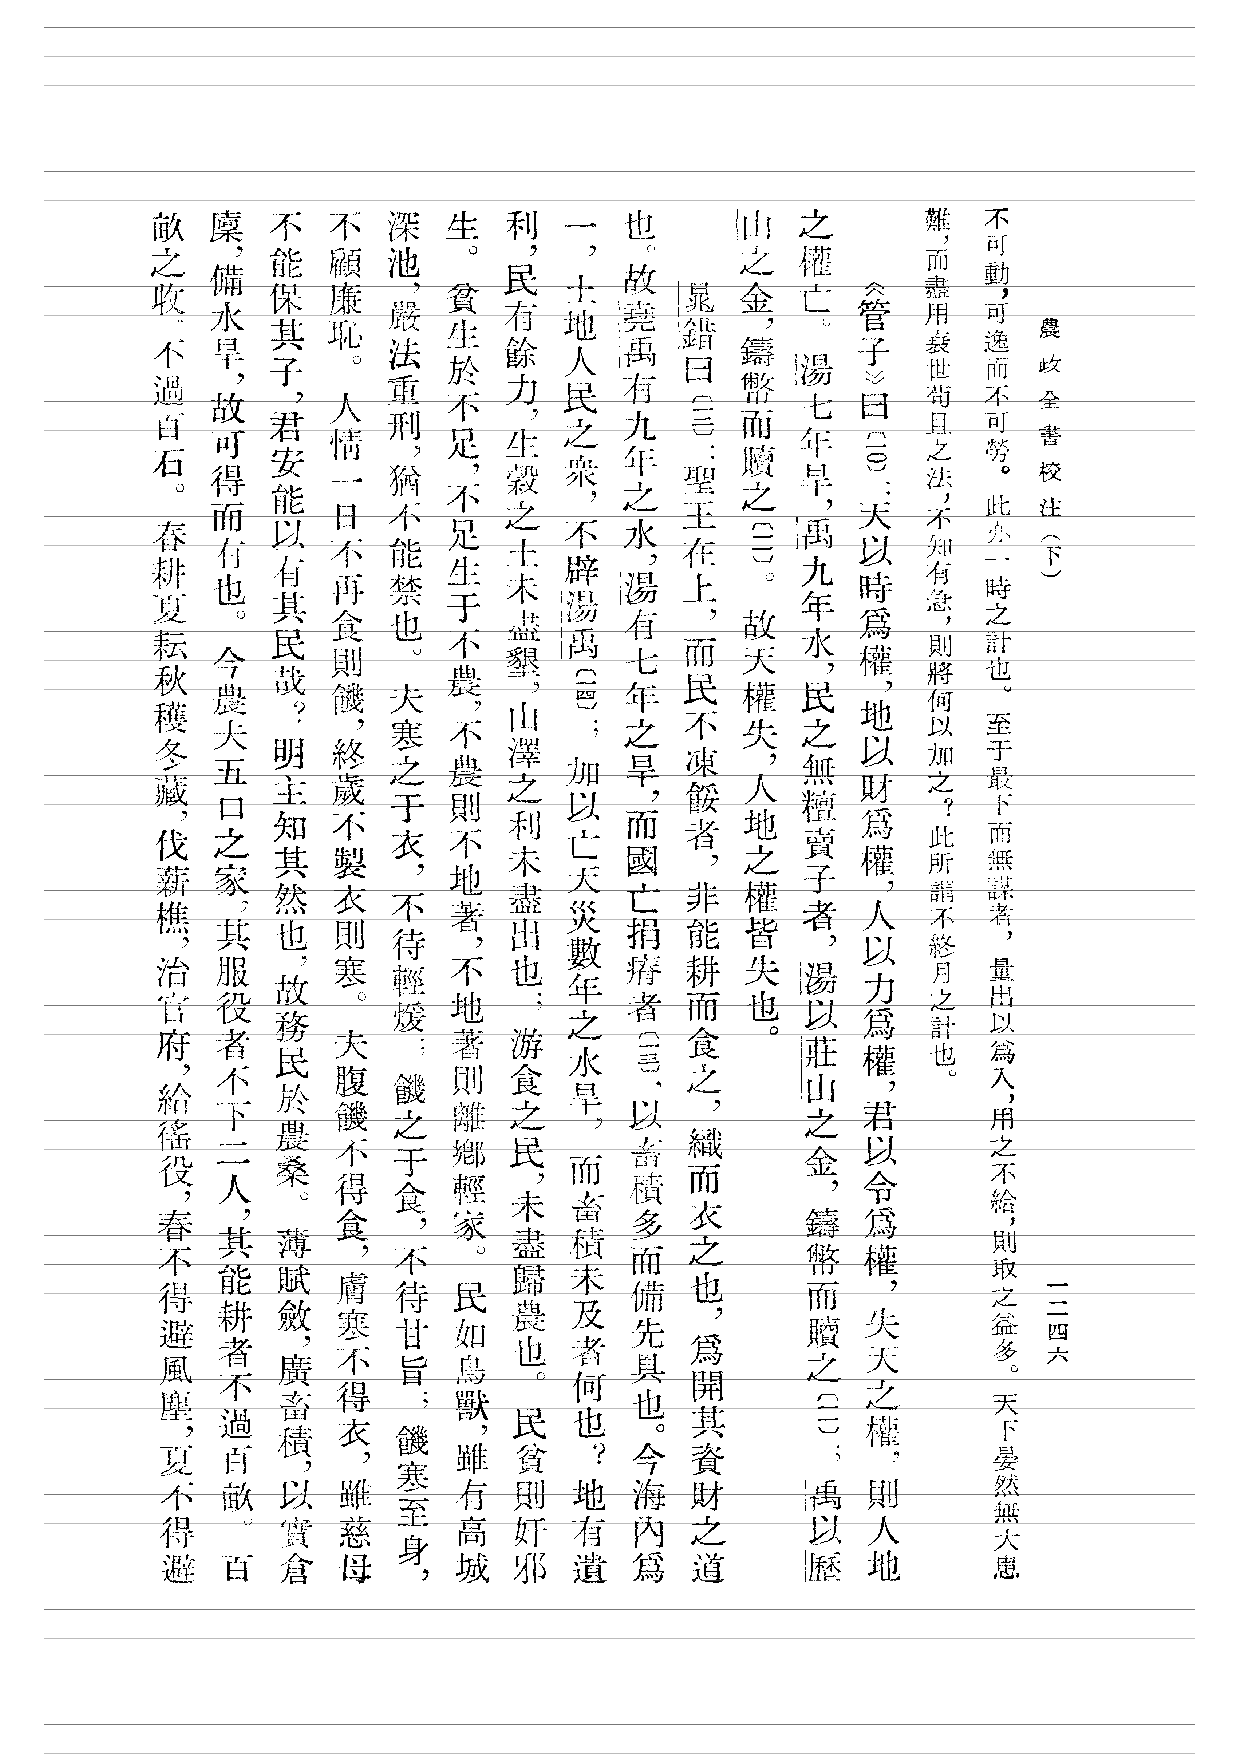 農政全書校注（下）
一二四六
不可動，可逸而不可勞。此亦一時之計也。至于最下而無謀者，量出以爲入，用之不給，則取之益多。天下晏然無大患
難，而盡用衰世苟且之法，不知有急，則將何以加之？此所謂不終月之計也。
《管子》曰〔一〇〕：天以時爲權，地以財爲權，人以力爲權，君以令爲權，失天之權，則人地
之權亡。湯七年旱，禹九年水，民之無𥹷賣子者，湯以莊山之金，鑄幣而贖之〔一一〕；禹以歷
山之金，鑄幣而贖之〔一二〕。故天權失，人地之權皆失也。
鼂錯曰〔一三〕：聖王在上，而民不凍餒者，非能耕而食之，織而衣之也，爲開其資財之道
也。故堯禹有九年之水，湯有七年之旱，而國亡捐瘠者〔一三〕、以畜積多而備先具也。今海內爲
一，土地人民之衆，不辟湯禹〔一四〕；加以亡天災數年之水旱，而畜積未及者何也？地有遺
利，民有餘力，生穀之土未盡墾，山澤之利未盡出也；游食之民，未盡歸農也。民貧則奸邪
生。貧生於不足，不足生于不農，不農則不地著，不地著則離鄉輕家。民如鳥獸，雖有高城
深池，嚴法重刑，猶不能禁也。夫寒之于衣，不待輕煖；饑之于食，不待甘旨；饑寒至身，
不顧廉恥。人情一日不再食則饑，終歲不製衣則寒。夫腹饑不得食，膚寒不得衣，雖慈母
不能保其子，君安能以有其民哉？明主知其然也，故務民於農桑。薄賦斂，廣畜積，以實倉
廩，備水旱，故可得而有也。今農夫五口之家，其服役者不下二人，其能耕者不過百畝。百
畝之收。不過百石。春耕夏耘秋穫冬藏，伐薪樵，治官府，給徭役，春不得避風塵，夏不得避